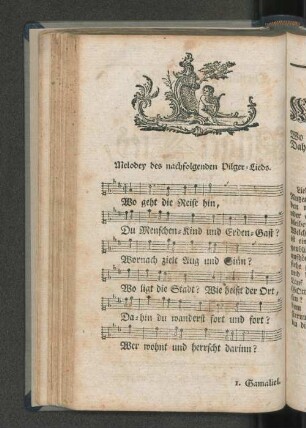 Melodey des nachfolgenden Pilger-Lieds.
Wo geht die Reise hin,
Du Menschen-Kind und Erden-Gast?
Wornach zielt Aug und Sinn?
Wo ligt die Stadt? Wie heißt der Ort,
Da-hin du wanderst fort und fort?
Wer wohnt und herrscht darinn?
1. Gamaliel.